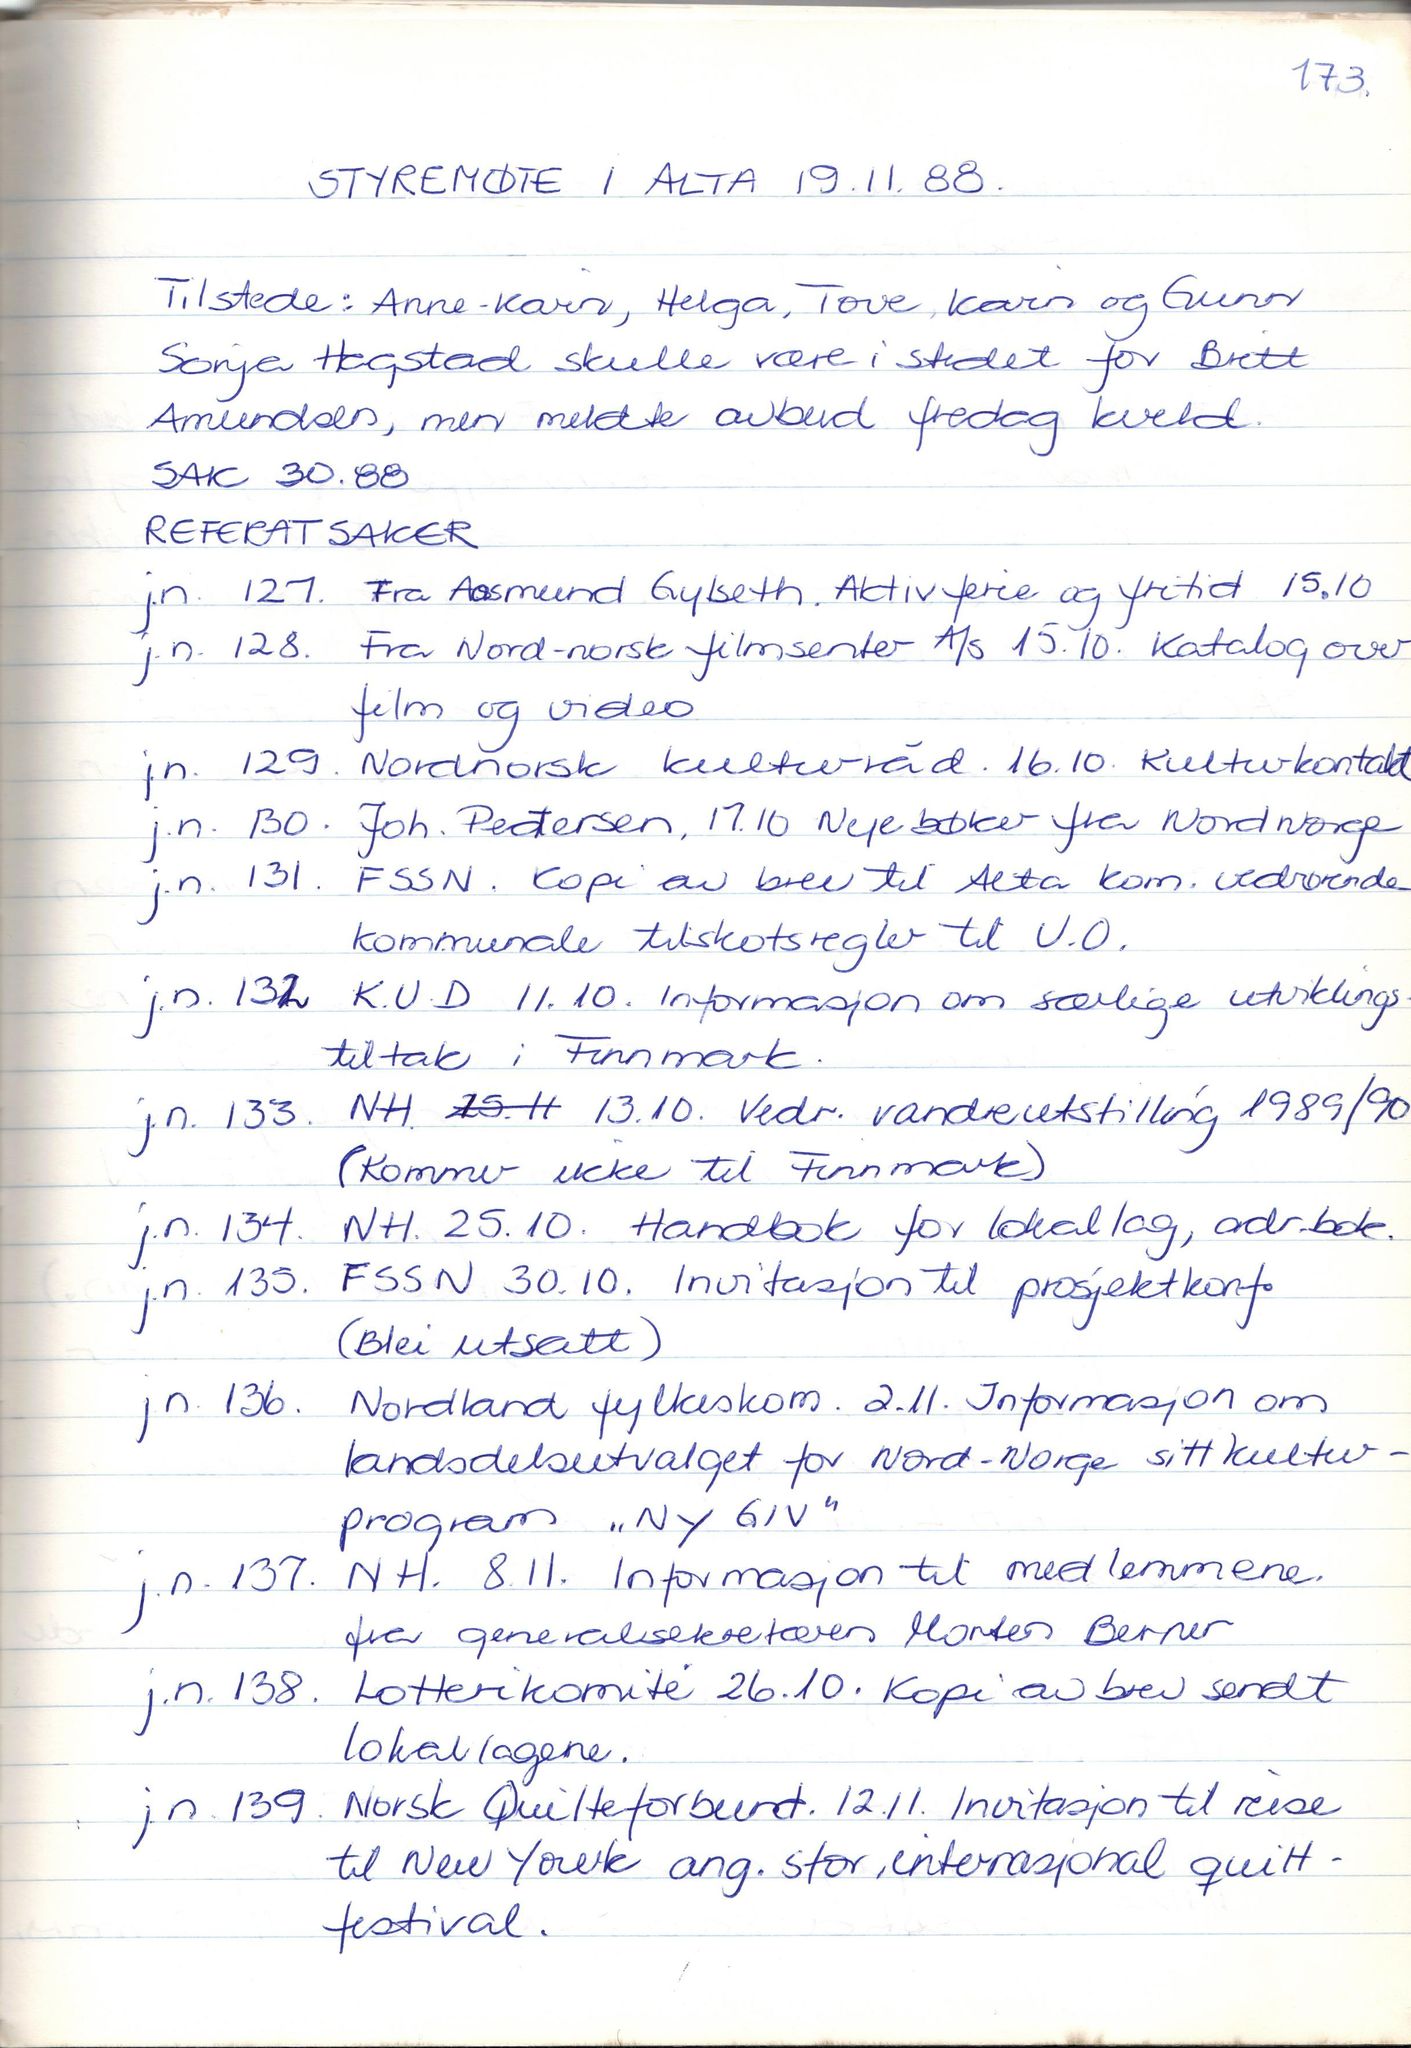 173.
STYREMØTE I ALTA 19.11.88.
Tilstede: Anne-Karin, Helga, Tove, Karin og Gunn
Sonja Hegstad skulle være i stedet for Britt
Amundsen, men meldte avbud fredag kveld.
SAK 30.88
REFERATSAKER
j.n. 127. Fra Aasmund Gylseth. Aktiv ferie og fritid 15.10
j.n. 128. Fra Nord-norsk filmsenter A/S 15.10. Katalog over
film og video
j.n. 129. Nordnorsk kulturråd. 16.10. Kulturkontakt
j.n. 130. Joh. Pedersen, 17.10 Nye bøker fra Nordnorge
j.n. 131. FSSN. Kopi av brev til Alta kom. vedrørende
kommunale tilskotsregler til V.O.
j.n. 132 K.U.D 11.10. Informasjon om særlige utviklings-
tiltak i Finnmark.
j.n. 133. NH. 13.10. Vedr. vandreutstilling 1989/90
(Kommer ikke til Finnmark)
j.n. 134. NH. 25.10. Handbok for lokallag, adr.bok.
j.n. 135. FSSN 30.10. Invitasjon til prosjektkonf.
(Blei utsatt)
j.n. 136. Nordland fylkeskom. 2.11. Informasjon om
landsdelsutvalget for Nord-Norge sitt kultur-
program „NY GIV"
j.n. 137. NH. 8.11. Informasjon til medlemmene.
fra generalsekretæren Morten Berner
j.n. 138. Lotterikomité 26.10. Kopi av brev sendt
lokallagene.
j.n. 139. Norsk Quilteforbund. 12.11. Invitasjon til reise
til New Yowrk ang. stor, internasjonal quilt-
festival.